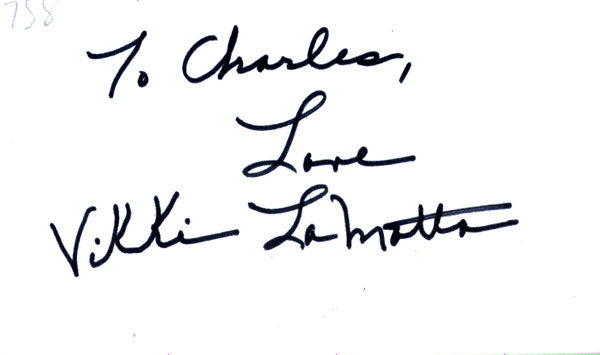 758
To Charles,
Love
Vikki LaMotta